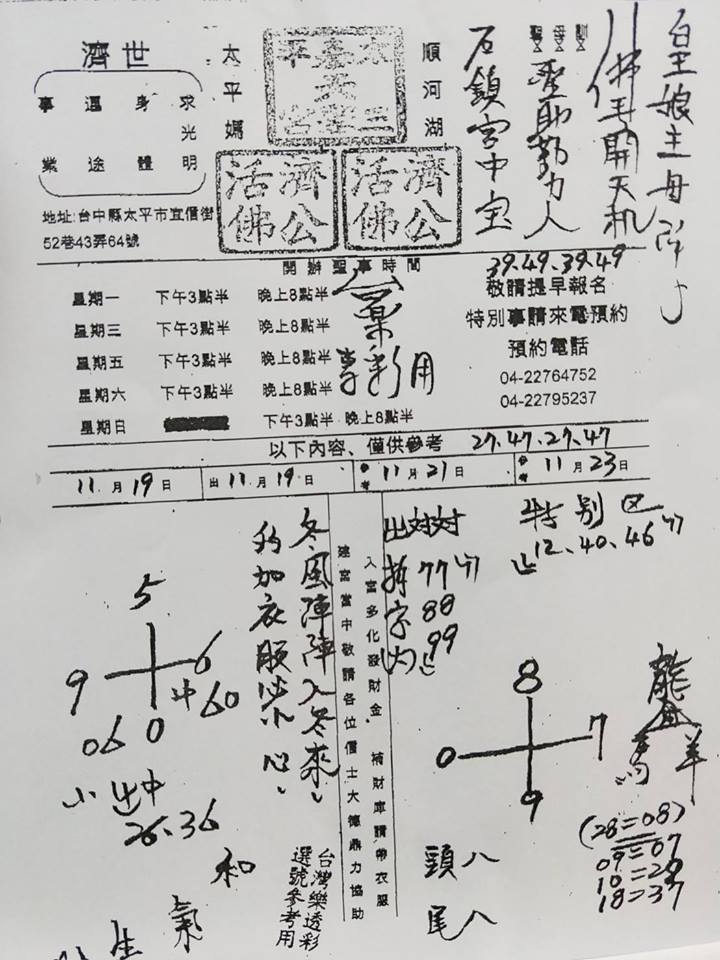 濟世
求身遇事
光
明體途業
地址:台中縣太平市宜信街
52巷43弄64號
太平媽
順河湖
濟公活佛
濟公活佛
石鎖宮中宝
聖母
聖助勤力人
佛手開天机
皇娘主母
開辦聖事時間
39.49.39.49
星期一 下午3點半 晚上8點半
星期三 下午3點半 晚上8點半
星期五 下午3點半 晚上8點半
星期六 下午3點半 晚上8點半
星期日 下午3點半 晚上8點半
彩用
敬請提早報名
特別事請來電預約
預約電話
04-22764752
04-22795237
以下內容、僅供參考 27.47.27.47
11月19日
出11月19日
參考11月21日
參考11月23日
特別区
12.40.46
出対対
拆 77
字 88
內 99
冬風陣陣入冬來、
加衣服 小心、
入宮多化發財金 補財庫請帶衣服
建宮當中敬請各位信士大德鼎力協助
5
9 6
0
60
06
26.36
8
0 7
9
龍
馬 羊
(28=08)
09=07
10=20
18=37
頭八
尾八
台灣樂透彩
選號參考用
和
氣
生